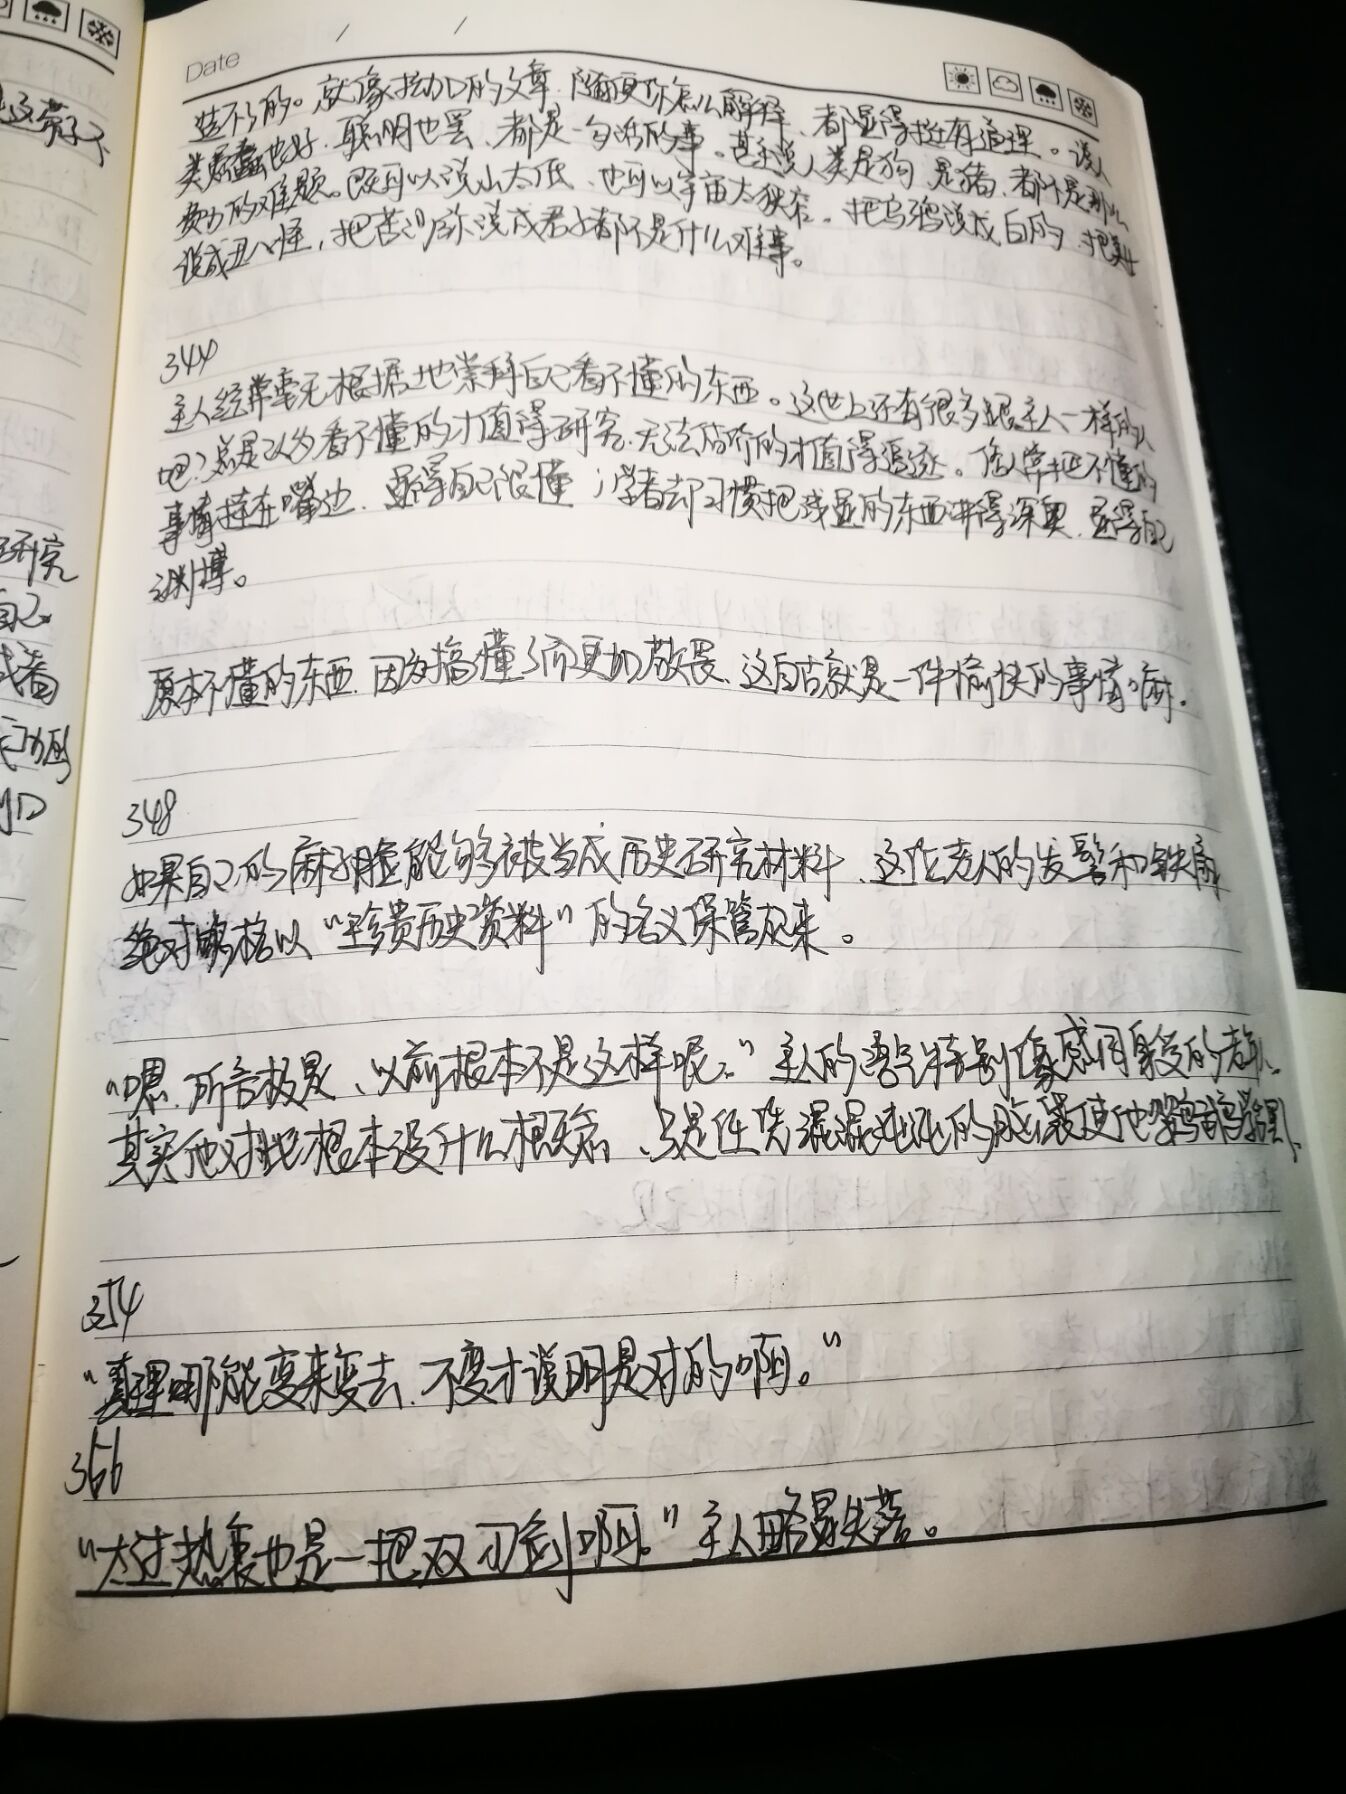 Date / /
造不了的。就像拉加D的文章,随便你怎么解释,都显得挺有道理。说人
类愚蠢也好,聪明也罢,都是一句话的事。甚至说人类是狗,是猪,都不是那么
费力的难题。既可以说山太低,也可以宇宙太狭窄。把乌鸦说成白的,把美女
说成丑八怪,把苦沙弥说成君子都不是什么难事。
344
主人经常毫无根据地崇拜自己看不懂的东西。这世上还有很多跟主人一样的人
吧?总是认为看不懂的才值得研究,无法估价的才值得追逐。俗人常把不懂的
事情挂在嘴边,显得自己很懂;学者却习惯把浅显的东西讲得深奥,显得自己
渊博。
原本不懂的东西,因为搞懂了而更加敬畏,这自古就是一件愉快的事情嘛。
348
如果自己的麻子脸能够被当成历史研究材料,这位老人的发髻和铁扇
绝对够格以“珍贵历史资料”的名义保管起来。
“嗯,所言极是,以前根本不是这样呢。”主人的语气特别像感同身受的老人。
其实他对此根本没什么概念,只是任凭混混沌沌的脑袋使他
354
“真理哪能变来变去,不变才说明是对的啊。”
366
“太过热衷也是一把双刃剑啊。”主人略显失落。
这荒子
研究
自己
或者